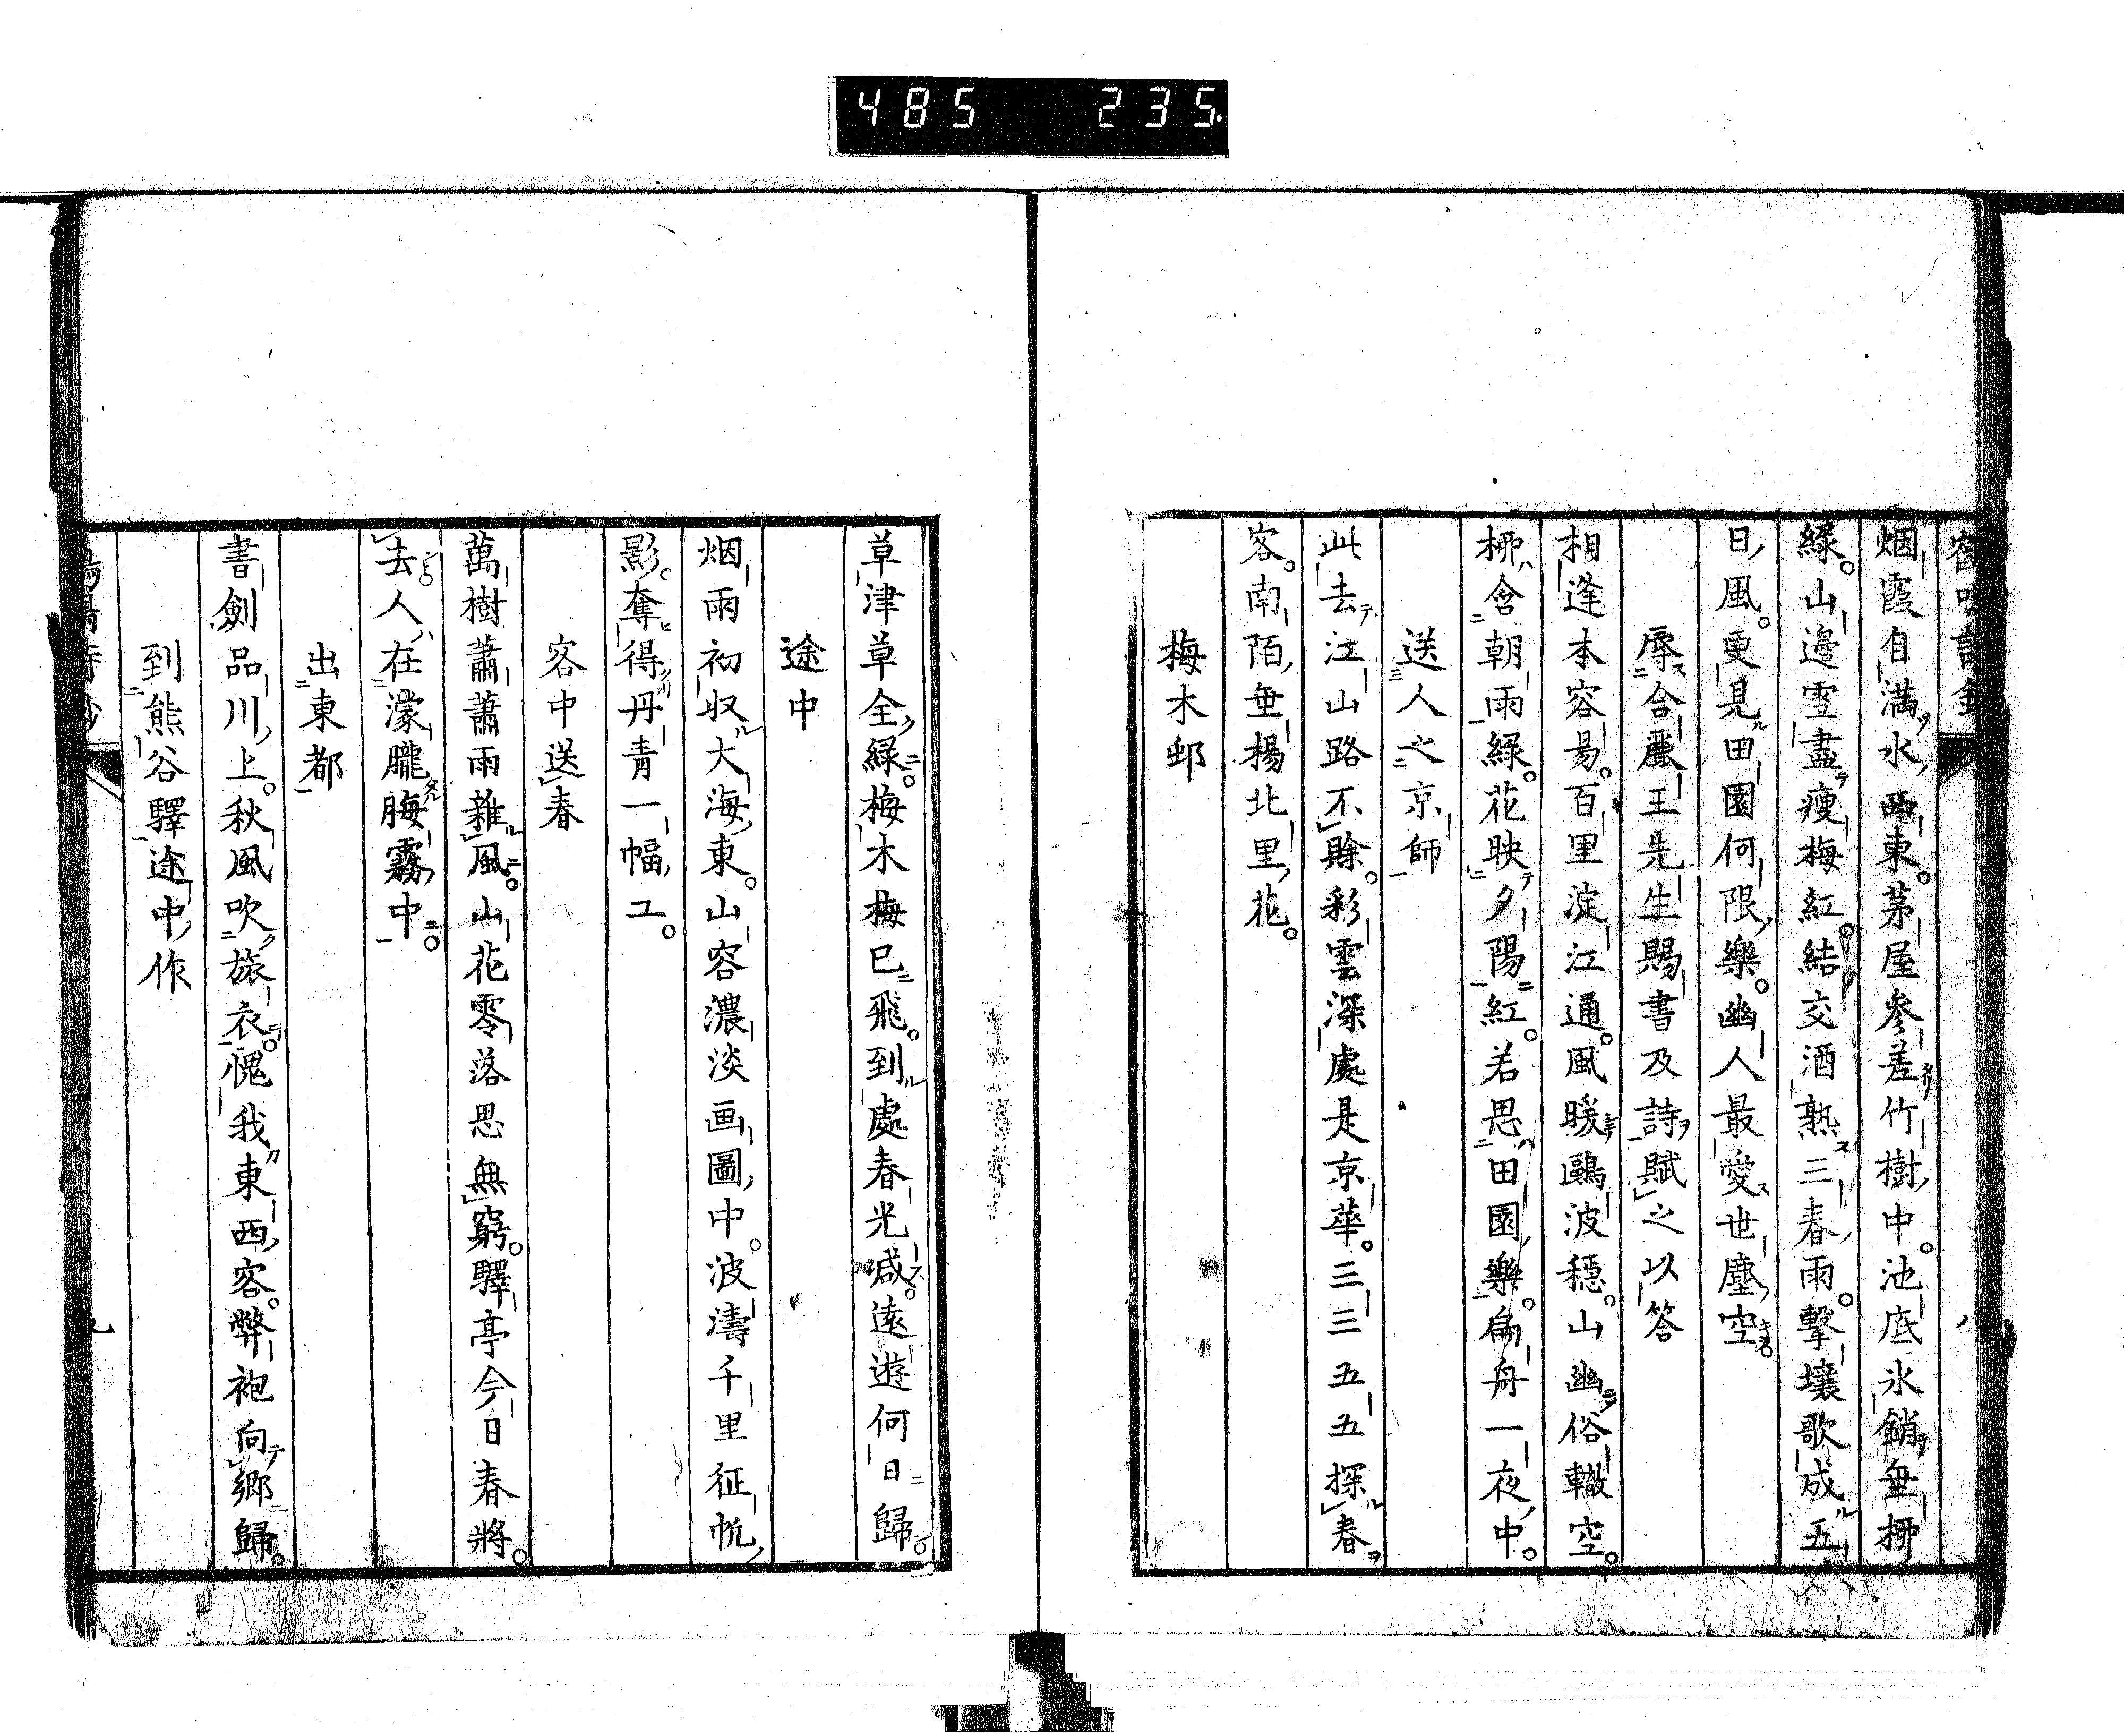 485 235.
烟霞自滿水西東。茅屋參差竹樹中。池底氷銷垂柳
綠。山邊雪盡瘦梅紅。結交酒熟三春雨。擊壤歌成五
日風。更見田園何限樂。幽人最愛世塵空。
辱合麗王先生賜書及詩賦之以答
相逢本容易。百里淀江通。風暖鷗波穩。山幽俗轍空。
柳含朝雨綠。花映夕陽紅。若思田園樂。扁舟一夜中。
送人之京師
此去江山路不賖。彩雲深處是京華。三三五五探春
客。南陌垂楊北里花。
梅木邨
草津草全綠。梅木梅已飛。到處春光減。遠遊何日歸。
途中
烟雨初収大海東。山容濃淡画圖中。波濤千里征帆
影。奪得丹青一幅工。
客中送春
萬樹蕭蕭雨雜風。山花零落思無窮。驛亭今日春將
去。人在濛朧晦霧中。
出東都
書劍品川上。秋風吹旅衣。愧我東西客。弊袍向鄉歸。
到熊谷驛途中作